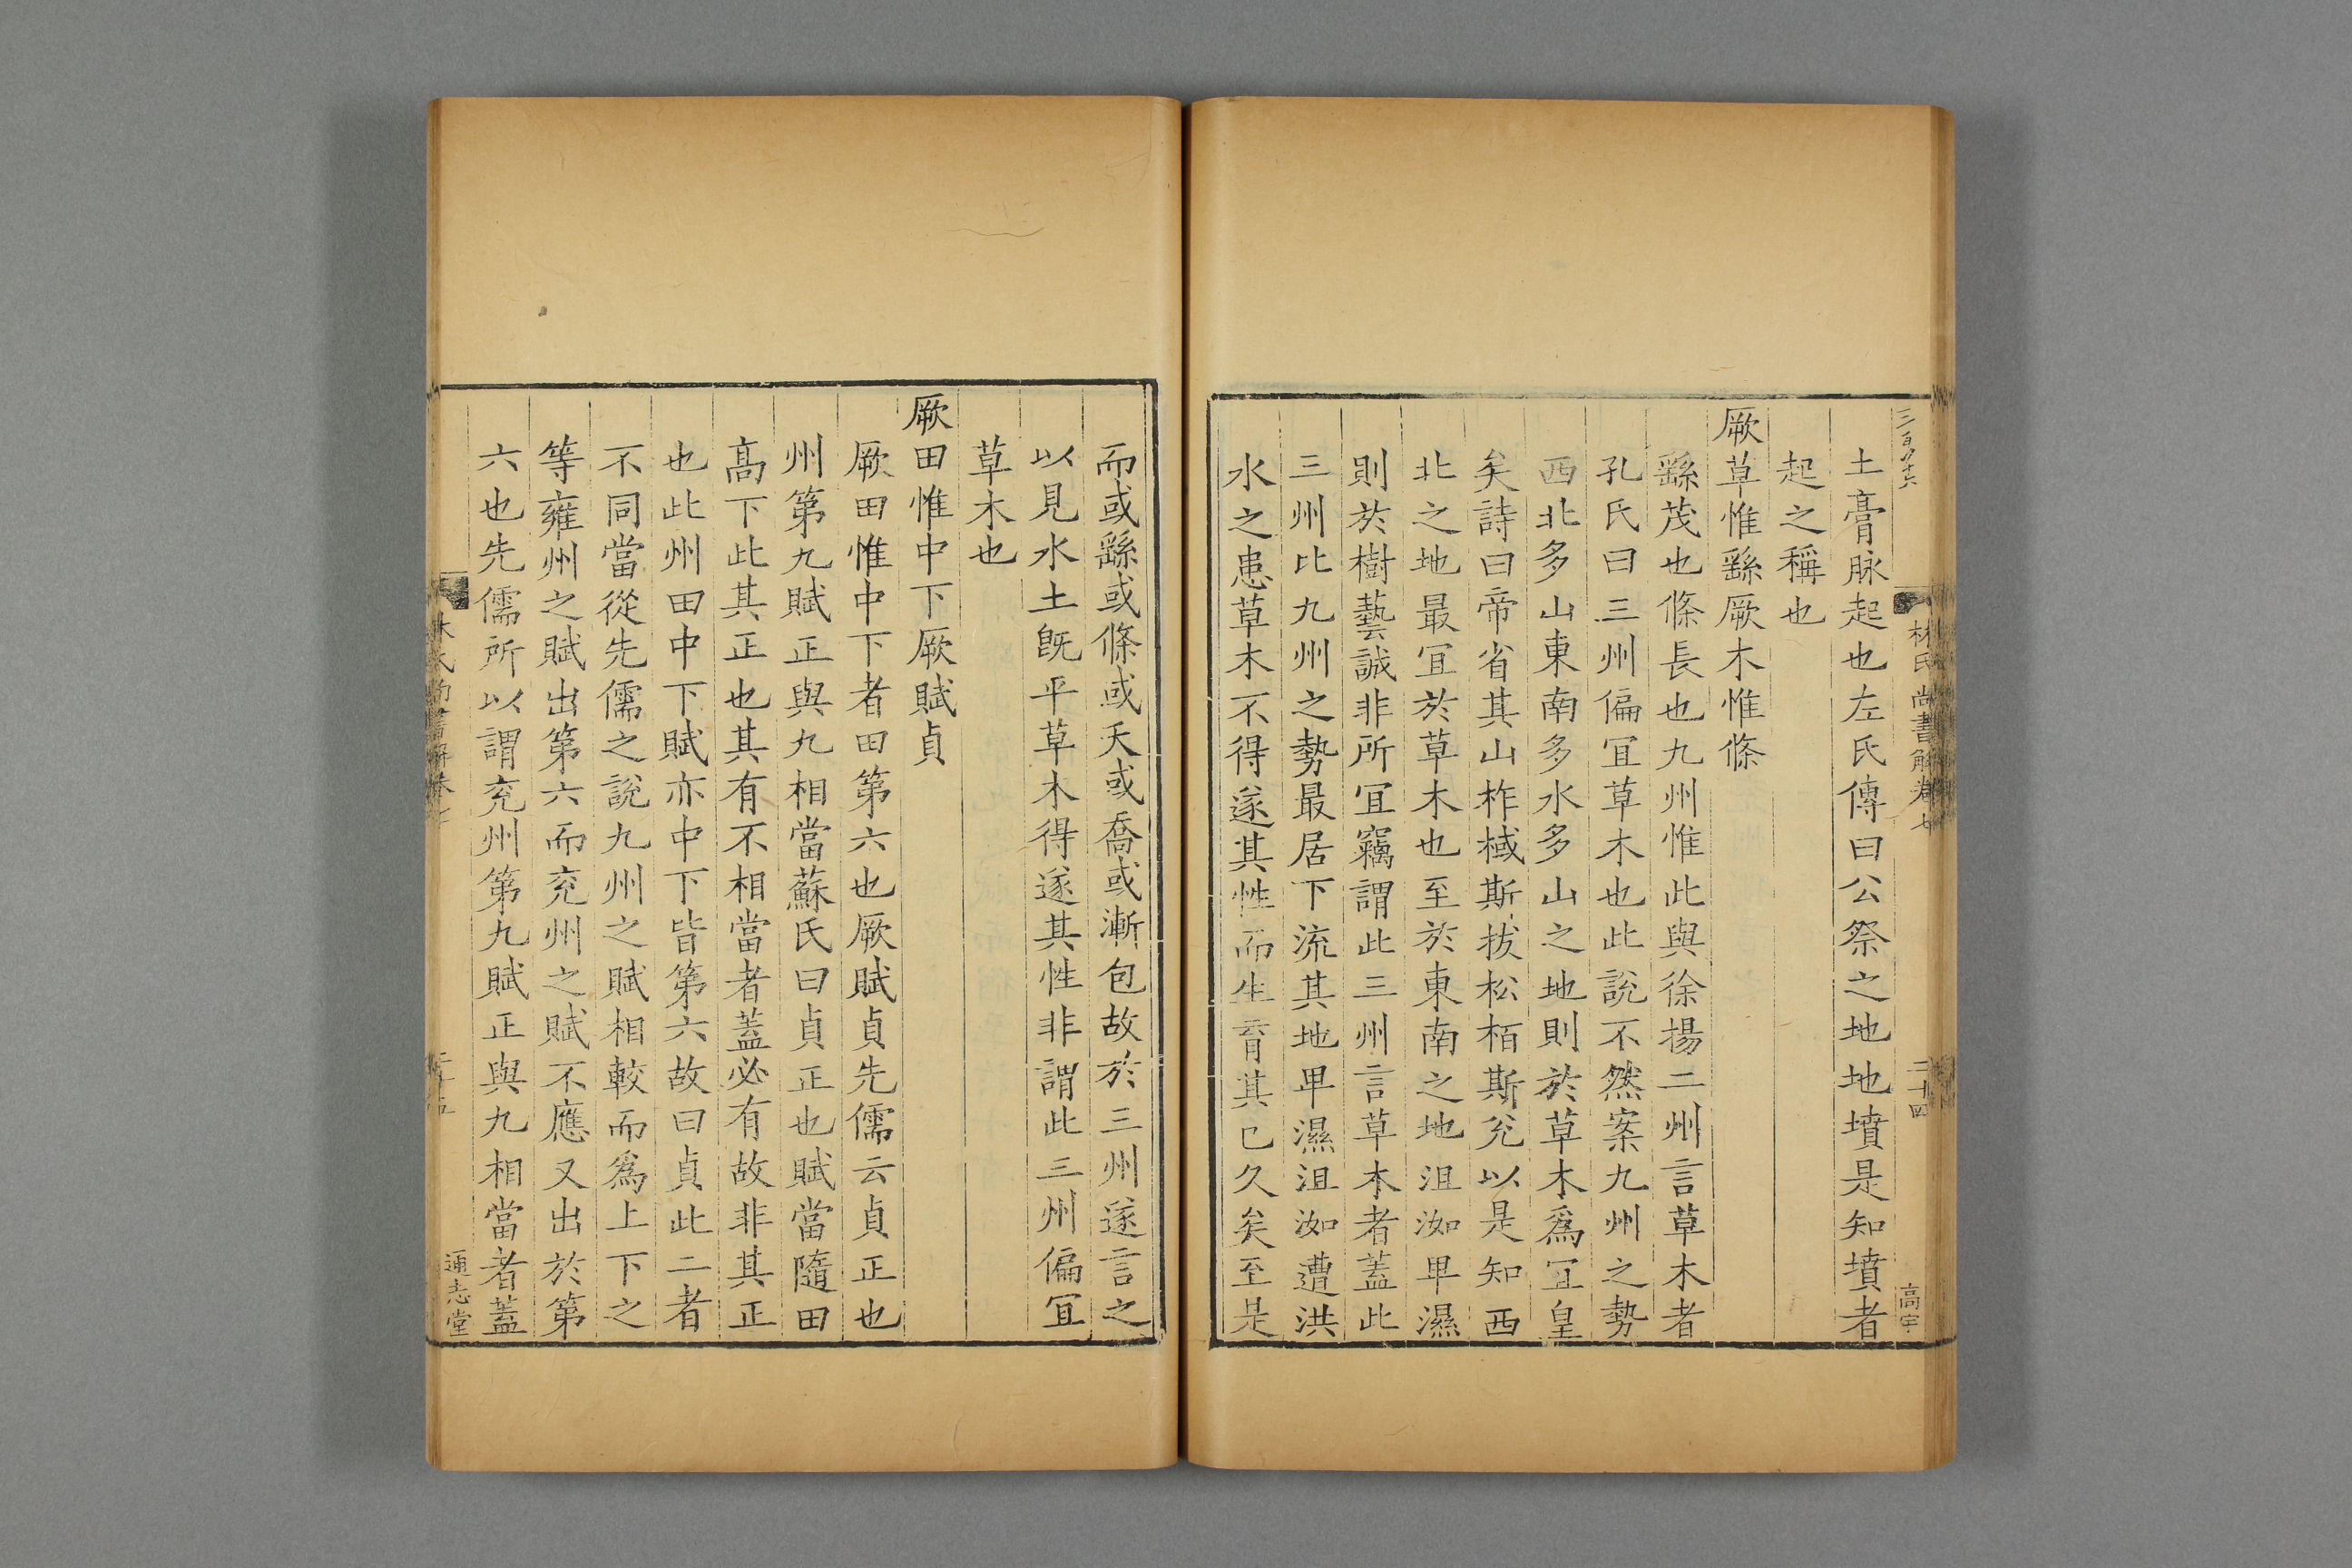 林氏尚書解卷七
三十四
高宇
土膏脉起也左氏傳曰公祭之地地墳是知墳者
起之稱也
厥草惟繇厥木惟條
繇茂也條長也九州惟此與徐揚二州言草木者
孔氏曰三州偏冝草木也此說不然案九州之勢
西北多山東南多水多山之地則於草木爲冝皇
矣詩曰帝省其山柞棫斯拔松栢斯兊以是知西
北之地最冝於草木也至於東南之地沮洳卑濕
則於樹藝誠非所冝竊謂此三州言草木者蓋此
三州比九州之勢最居下流其地卑濕沮洳遭洪
水之患草木不得遂其性而生育其已久矣至是
而或繇或條或夭或喬或漸包故於三州遂言之
以見水土旣平草木得遂其性非謂此三州偏冝
草木也
厥田惟中下厥賦貞
厥田惟中下者田第六也厥賦貞先儒云貞正也
州第九賦正與九相當蘇氏曰貞正也賦當隨田
高下此其正也其有不相當者蓋必有故非其正
也此州田中下賦亦中下皆第六故曰貞此二者
不同當從先儒之說九州之賦相較而爲上下之
等雍州之賦出第六而兖州之賦不應又出於第
六也先儒所以謂兖州第九賦正與九相當者蓋
通志堂